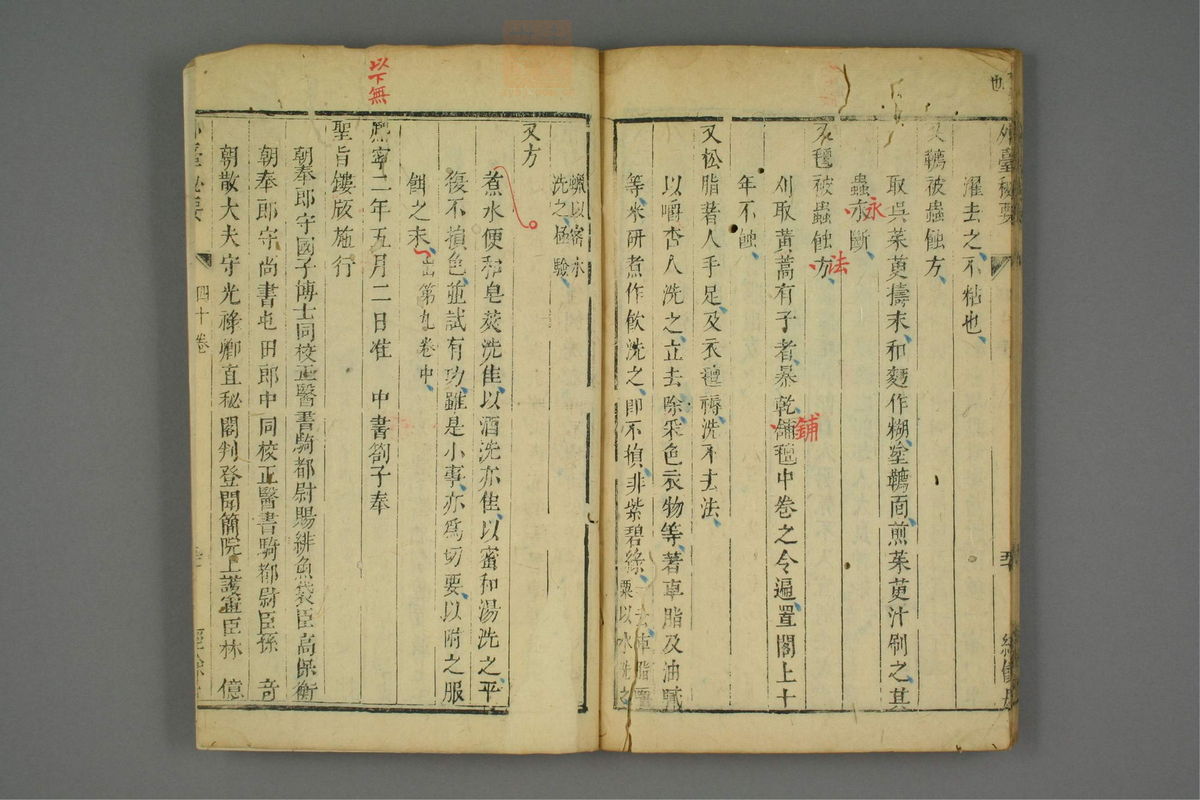 也
外臺秘要
濯去之不粘也
又韉被蟲蝕方
取吳茱萸擣末和麵作糊塗韉面煎茱萸汁刷之其
蟲永斷
永
又氊被蟲蝕方
法
刈取黃蒿有子者暴乾鋪氊中卷之令遍置閣上十
鋪
年不蝕
又松脂著人手足及衣氊褥洗不去法
以嚼杏人洗之立去除采色衣物等著車脂及油膩
等米研煮作飲洗之即不損非紫碧綠
粟以水洗之
蠟以密水
洗之極驗
又方
煮水便和皂莢洗佳以酒洗亦佳以蜜和湯洗之平
復不損色並試有功雖是小事亦為切要以附之服
餌之末出第九卷中
以下無
熙寧二年五月二日准 中書劄子奉
聖旨鏤版施行
朝奉郎守國子博士同校正醫書騎都尉賜緋魚袋臣高保衡
朝奉郎守尚書屯田郎中同校正醫書騎都尉臣孫 奇
朝散大夫守光祿卿直秘閣判登聞簡院上護軍臣林 億
臺秘要
四十卷